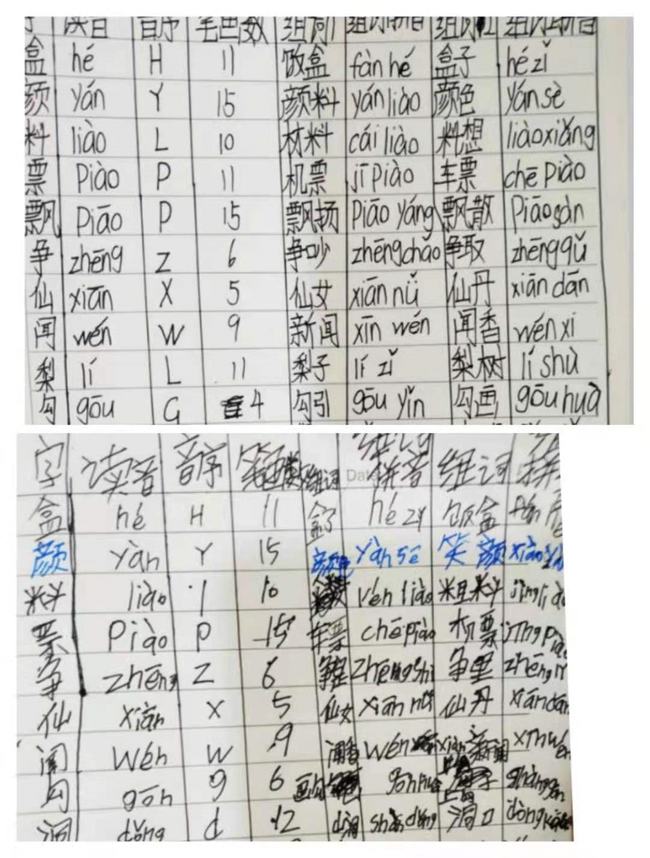 读音 音序 笔画数 组词1 组词拼音 组词 组词拼音
盒 hé H 11 饭盒 fàn hé 盒子 hé zǐ
颜 yán Y 15 颜料 yán liào 颜色 yán sè
料 liào L 10 材料 cái liào 料想 liào xiǎng
票 piào P 11 机票 jī piào 车票 chē piào
飘 piāo P 15 飘扬 piāo yáng 飘散 piāo sàn
争 zhēng Z 6 争吵 zhēng chǎo 争取 zhēng qǔ
仙 xiān X 5 仙女 xiān nǚ 仙丹 xiān dān
闻 wén W 9 新闻 xīn wén 闻香 wén xi
梨 lí L 11 梨子 lí zǐ 梨树 lí shù
勾 gōu G 4 勾引 gōu yǐn 勾画 gōu huà
字 读音 音序 笔画数 组词 组词拼音 组词
盒 hé H 11 盒子 hé zy 饭盒
颜 yàn Y 15 颜色 yàn sè 笑颜
料 liào l 10 liào 粗料
票 piào P 15 车票 chē piào 机票
争 zhēng Z 6 争 争里
仙 xiān X 5 仙女 xiān nǚ 仙丹 xiān dān
闻 wén W 9 闻 wén 新闻 xīn wén
勾 gōn g 6
洞 dǒng d 12 洞口